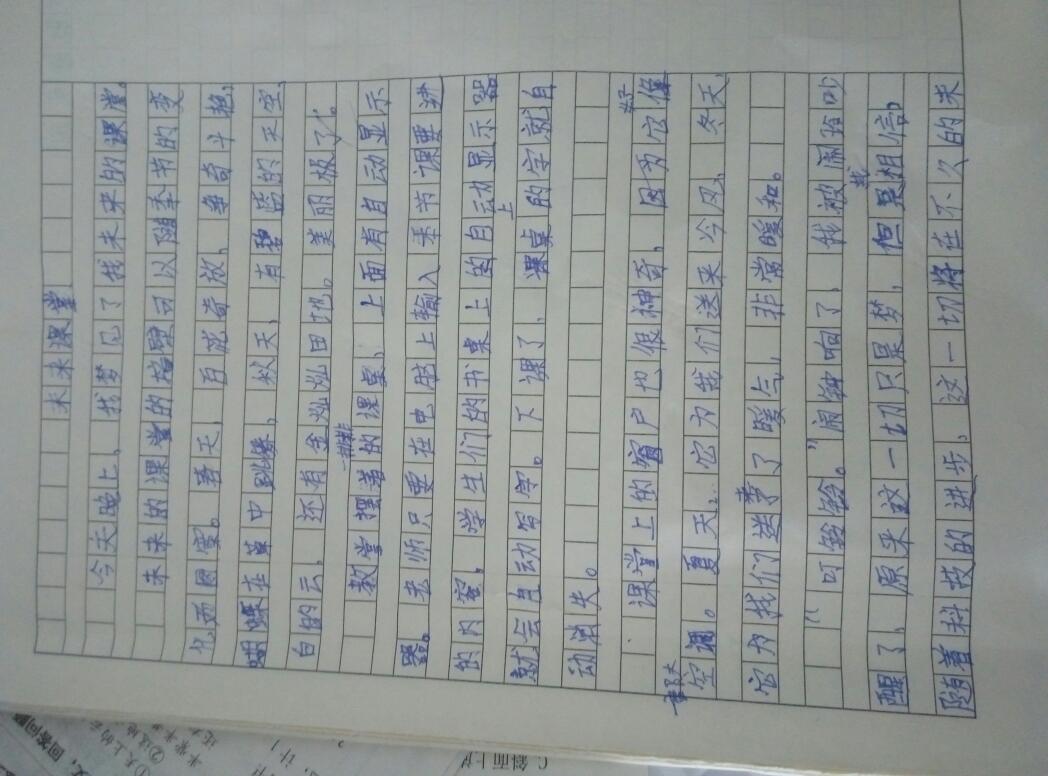 未来课堂
今天晚上，我梦见了我未来的课堂。
未来的课堂的墙壁可以随季节的变
化而图案。春天，百花齐放，争奇斗艳，
蝴蝶在草中跳舞，秋天，有碧蓝的天空，
白的云，还有金灿灿田地。美丽极了。
教室摆着一排排的课桌，上面有自动显示
器。老师只要在电脑上输入本节课要教
的内容，学生们的书桌上的自动显示器
就会自动写字。下课了，课桌上的字就自
动消失。
课堂上的窗户也很神奇，因为它像
空调。夏天，它为我们送来冷风，冬天，
它为我们送了暖气，非常暖和。
“叮铃铃。”闹钟响了，我被闹铃吵
醒了，原来这一切只是梦，但我相信，
随着科技的进步，这一切将在不久的未
C. 斜面上